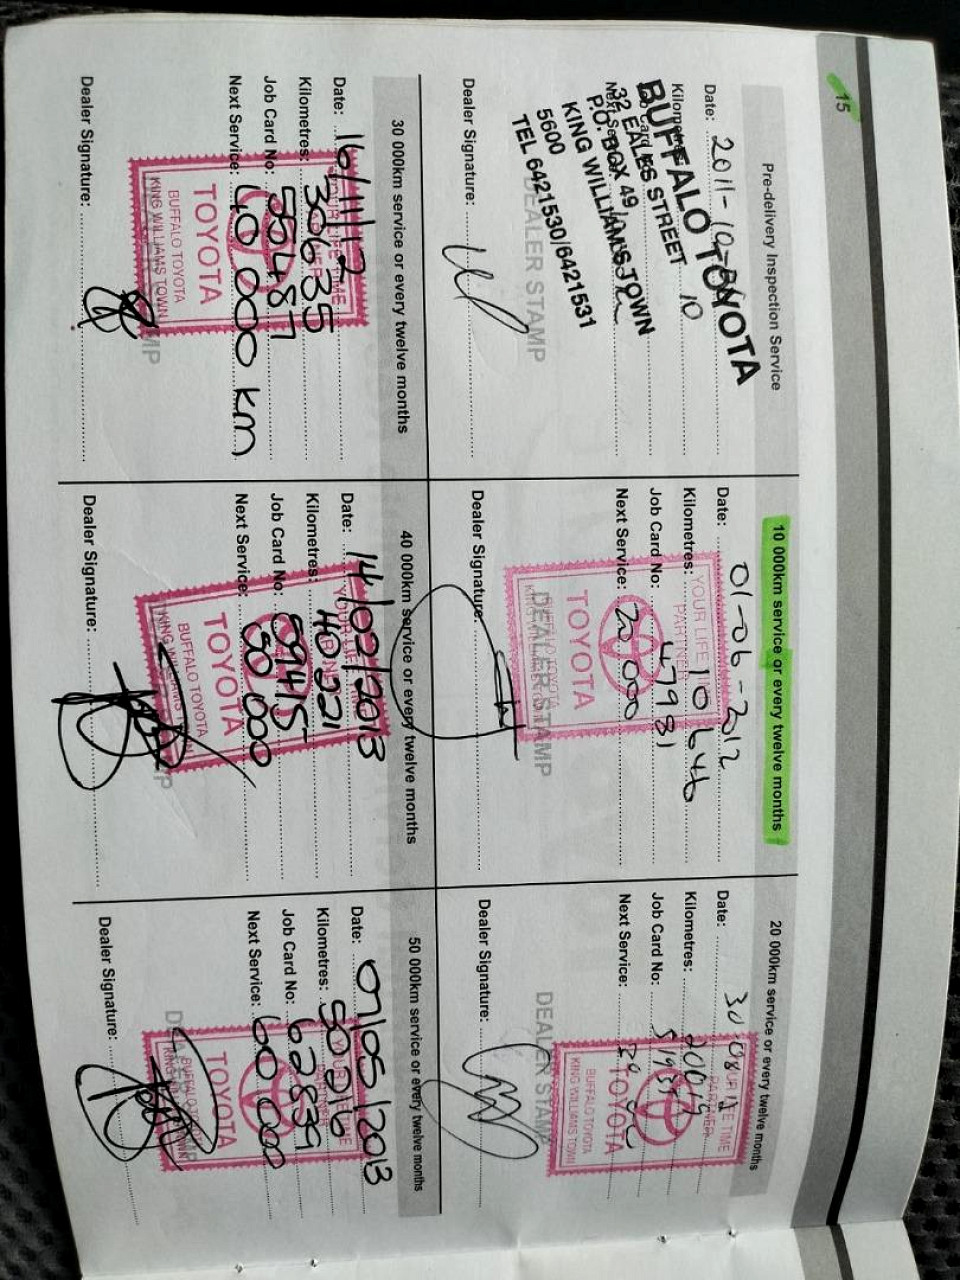 15
Pre-delivery Inspection Service
Date: 2011-10-
Kilometres: 10
Job Card No:
Next Service:
BUFFALO TOYOTA
32 EALES STREET
P.O. BOX 49
KING WILLIAMS TOWN
5600
TEL 6421530/6421531
DEALER STAMP
Dealer Signature:
10 000km service or every twelve months
Date: 01-06-2012
Kilometres: 10646
Job Card No: 47981
Next Service: 20 000
YOUR LIFE TIME
PARTNER
TOYOTA
BUFFALO TOYOTA
KING WILLIAMS TOWN
DEALER STAMP
Dealer Signature:
20 000km service or every twelve months
Date: 30/08/12
Kilometres: 20019
Job Card No:
Next Service:
YOUR LIFE TIME
PARTNER
TOYOTA
BUFFALO TOYOTA
KING WILLIAMS TOWN
DEALER STAMP
Dealer Signature:
30 000km service or every twelve months
Date: 16/11/12
Kilometres: 30635
Job Card No: 55487
Next Service: 40 000 km
YOUR LIFE TIME
PARTNER
TOYOTA
BUFFALO TOYOTA
KING WILLIAMS TOWN
Dealer Signature:
40 000km service or every twelve months
Date: 14/02/2013
Kilometres: 40221
Job Card No: 59445
Next Service: 50 000
YOUR LIFE TIME
PARTNER
TOYOTA
BUFFALO TOYOTA
KING WILLIAMS TOWN
Dealer Signature:
50 000km service or every twelve months
Date: 07/05/2013
Kilometres:
Job Card No: 62839
Next Service: 60 000
YOUR LIFE TIME
PARTNER
TOYOTA
BUFFALO TOYOTA
KING WILLIAMS TOWN
Dealer Signature: